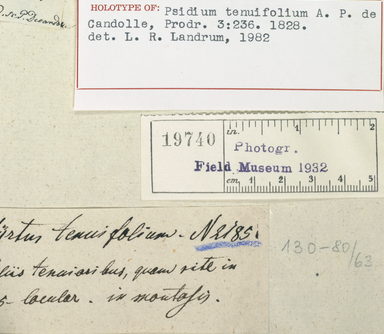 HOLOTYPE OF: Psidium tenuifolium A. P. de
Candolle, Prodr. 3:236. 1828.
det. L. R. Landrum, 1982
19740
in. 1 2
Photogr.
Field Museum 1932
cm. 1 2 3 4 5
tenuifolium. N2185.
tenuioribus, quam rite in
5-locular. in montosis.
130-80/63